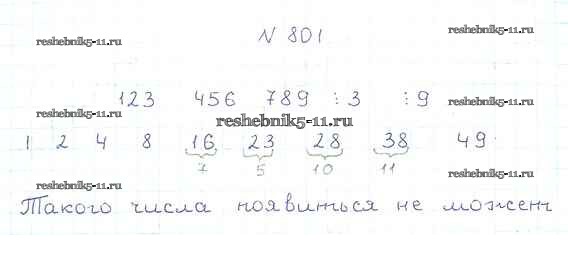 N 801
reshebnik5-11.ru reshebnik5-11.ru
123 456 789 ⋮3 ⋮9
reshebnik5-11.ru reshebnik5-11.ru
reshebnik5-11.ru
1 2 4 8 16 23 28 38 49
7 5 10 11
reshebnik5-11.ru reshebnik5-11.ru
Такого числа появиться не может